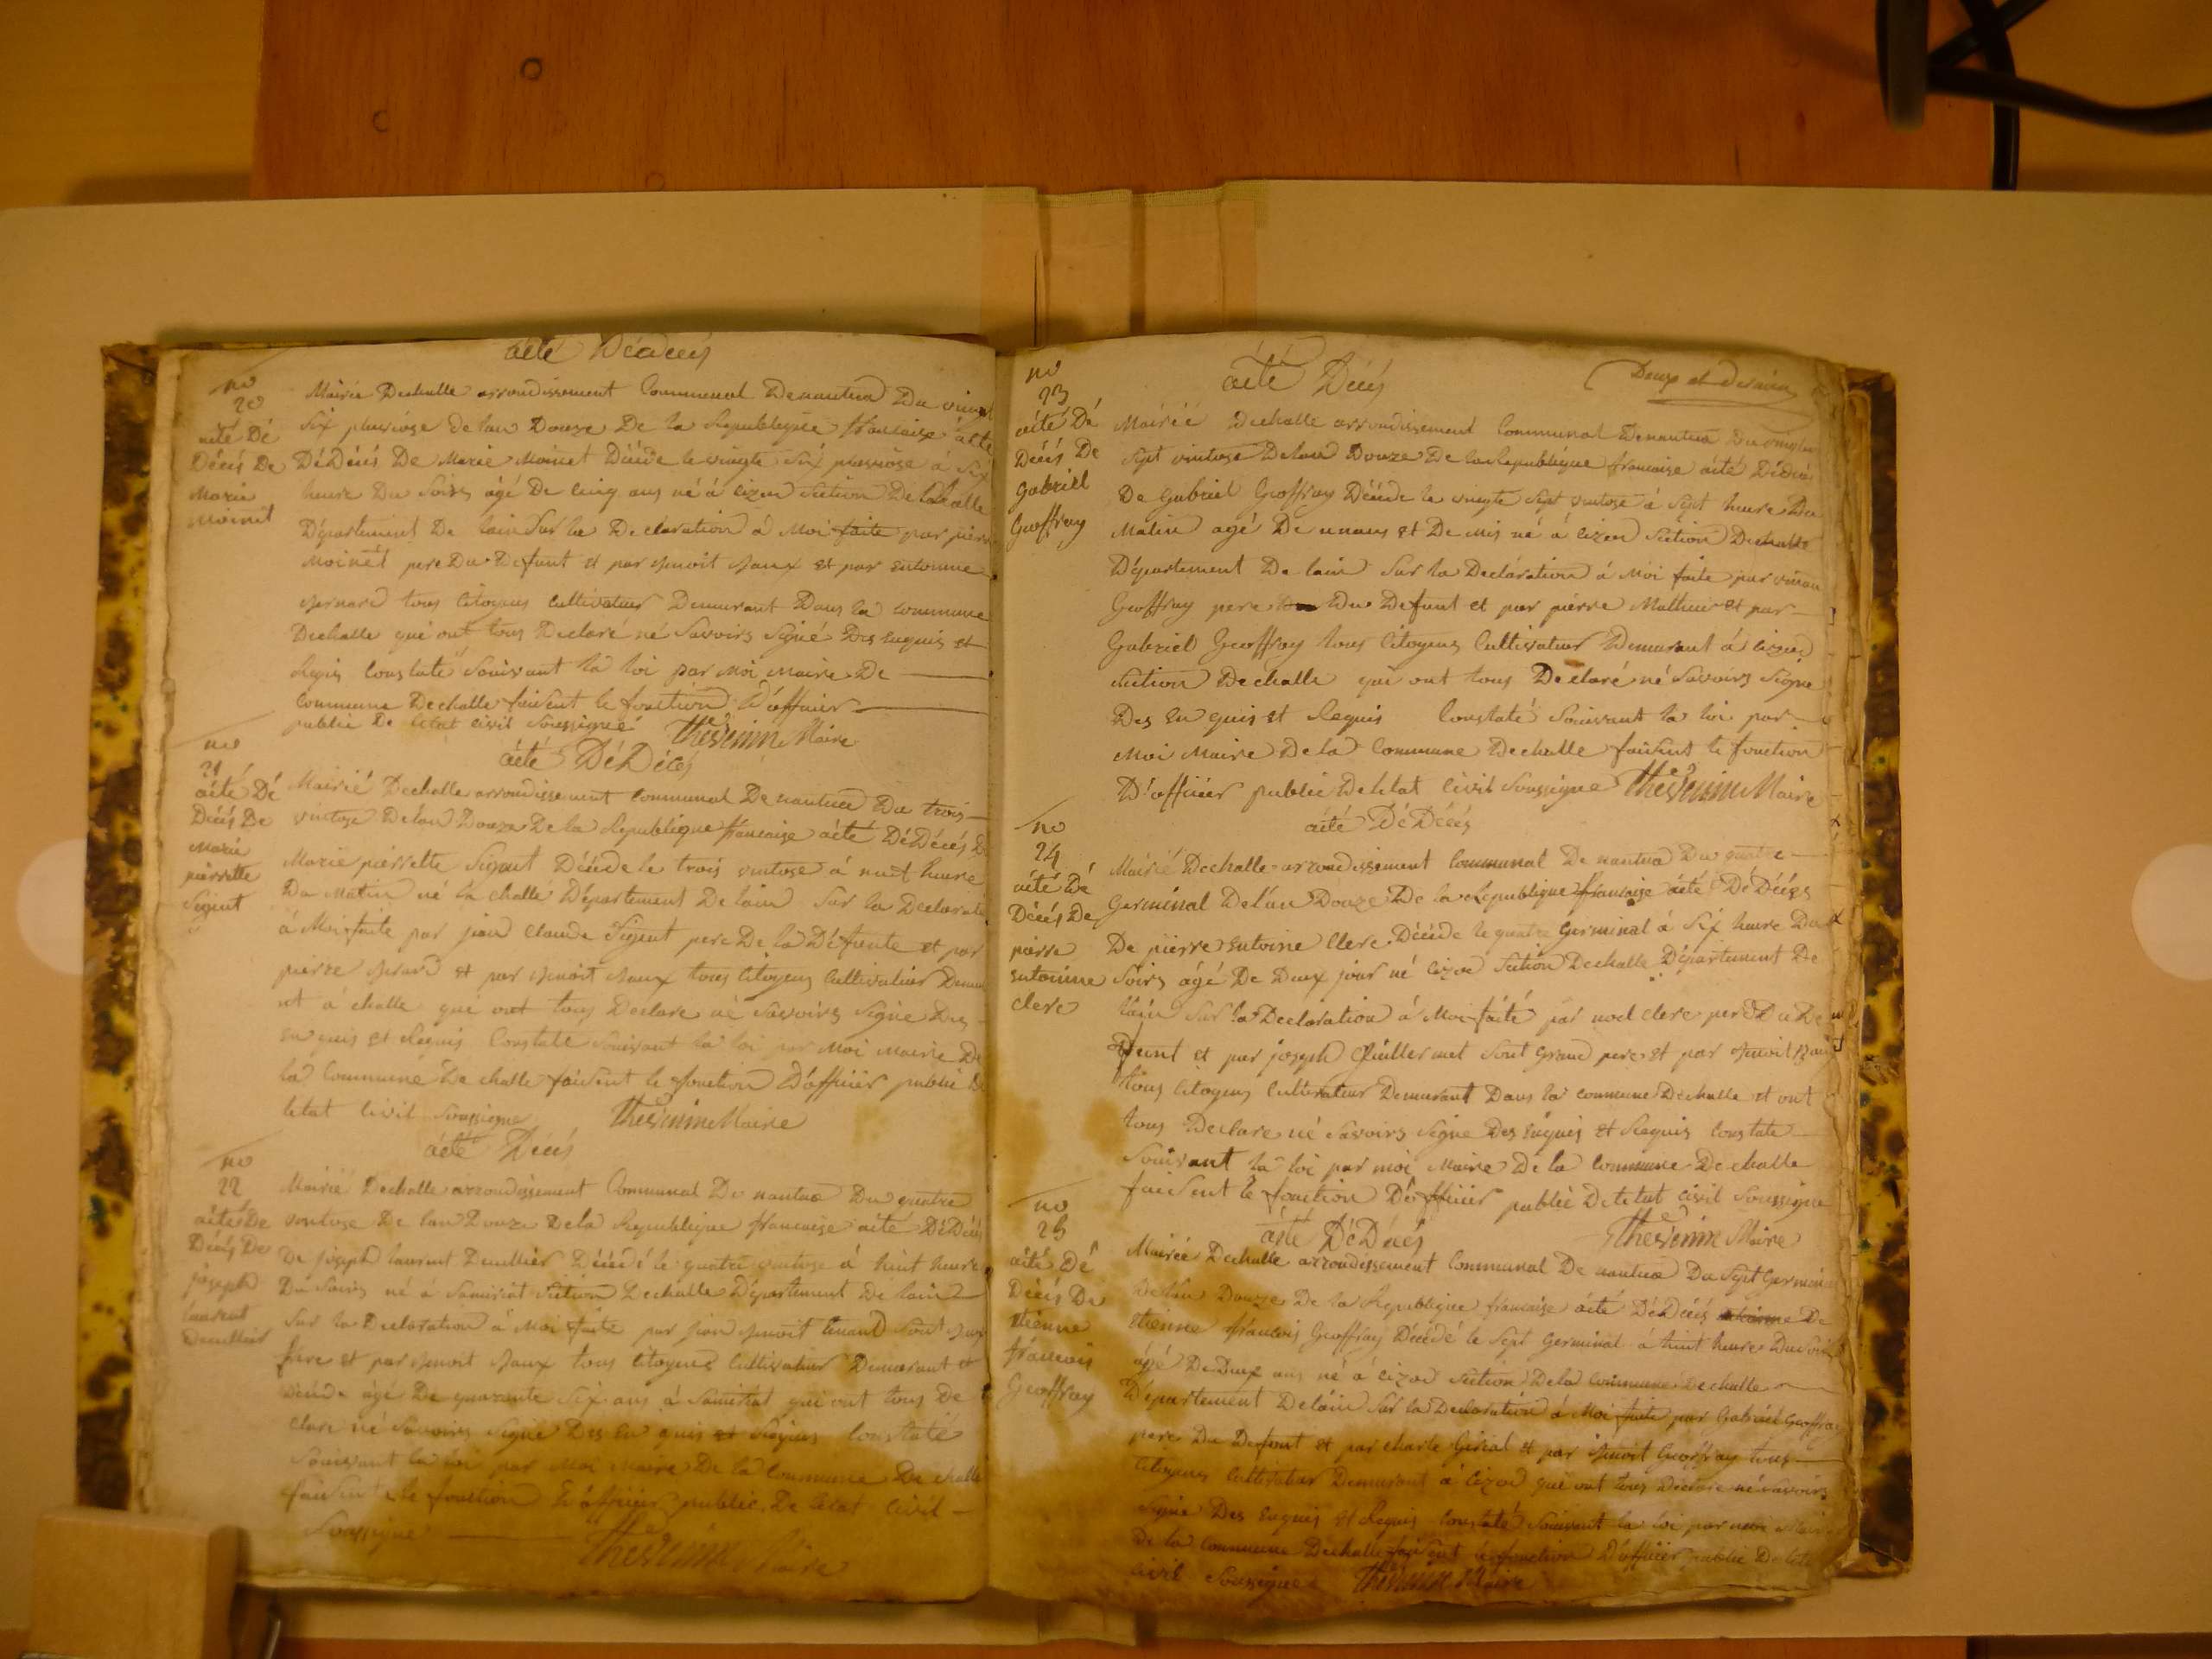 acte Dédecés
no
20
acté Dé
Décés De
Marie
Moinet
Mairie Dechalle arrondissement Communal Denantua Du vingt
Six pluviose de lan Douze De la Republique francaise acte
DéDécés De Marie Moinet Décéde le vingte Six pluviose à Six
heure Du Soirs âgé De cinq ans né à Cizod Section De challe
Département De lain Sur la Declaration à Moi faite par pierre
Moinet pere Du Defunt et par et par antoinne
tous Citoyens Cultivateur Demurant Dans la commune
Dechalle qui ont tous Declaré né Savoirs Signé Des enquis et
Requis Constaté Souivant la loi par Moi Maire De
Commune Dechalle faisent le fonction D'officier
public De letat civil Soussigné Thevenin Maire
acté DéDécés
no
21
acté Dé
Décés De
Marie
pierrette
Sigent
Mairié Dechalle arrondissement Communal Denantua Du trois
ventose Delan Douze De la Republique francaise acté DéDécés D
Marie pierrette Sigent Décéde le trois ventose à nuit heure
Du Matin né la challe Département Delain Sur la Declarat
à Moi faite par jean Claude Sigent pere De la Défunte et par
pierre et par tous Citoyens Cultivateur Demur
nt à challe qui ont tous Declare né Savoirs Signé Des
enquis et Requis Constaté Souivant la loi par Moi Maire De
la Commune De challe faisent le fonction D'officier public De
letat Civil Soussigne Thevenin Maire
acté Décés
no
22
acté De
Décés De
joseph
laurent
Mairié Dechalle arrondissement Communal De nantua Du quatre
ventose De lan Douze Dela Republique francaise acté DéDécés
De joseph laurent Décédé le quatre ventose à huit heure
Du Soirs né à Samiriat Section Dechalle Département De lain
Sur la Declaration à Moi faite par jean Sont
frere et par tous Citoyens Cultivateur Demurant et
Décéde âgé De quarante Six ans à Samiriat qui ont tous De
clare né Savoirs Signé Des En quis et Requis Constaté
Souivant la loi par Moi Maire De la Commune De challe
faisent le fonction D'officier public De letat civil
Soussigne Thevenin Maire
acté Décés
no
23
acté Dé
Décés De
Gabriel
Geoffray
Mairié Dechalle arrondissement Communal Denantua Du vingte
Sept ventose Delan Douze De la Republique francaise acté DéDécés
De Gabriel Geoffray Décéde le vingte Sept ventose à Sept heure Du
Matin agé De unans et De mis né à Cizod Section Dechalle
Département De lain Sur la Declaration à Moi faite par
Geoffray pere Du Defunt et par pierre Mathieu et par
Gabriel Geoffray tous Citoyens Cultivateur Demurant à Cizod
Section Dechalle qui ont tous Declaré né Savoirs Signe
Des En quis et Requis Constaté Souivant la loi par
Moi Maire De la Commune Dechalle faisent le fonction
D'officier public De letat civil Soussigne Thevenin Maire
acté DéDécés
no
24
acté Dé
Décés De
pierre
antoinne
clerc
Mairié Dechalle arrondissement Communal De nantua Du quatre
Germinal Delan Douze De la Republique francaise acté DéDécés
De pierre antoine Clerc Décéde le quatre Germinal à Six heure Du
Soirs âgé De Deux jour né Cizod Section Dechalle Département De
lain Sur la Declaration à Moi faité par noel clerc pere Du De
funt et par joseph Quillermet Sont Grand pere et par
tous Citoyens Cultivateur Demurant Dans la commune Dechalle et ont
tous Declare né Savoirs Signe Des Enquis et Requis Constaté
Souivant la loi par moi Maire De la Commune De challe
faisent le fonction D'officier public De letat civil Soussigne
Thevenin Maire
acté DéDécés
no
25
acté Dé
Décés De
Etienne
francois
Geoffray
Mairié Dechalle arrondissement Communal De nantua Du Sept Germinal
Delan Douze De la Republique francaise acté DéDécés De
Etienne francois Geoffray Décédé le Sept Germinal à huit heure Du Soir
âgé De Deux ans né à Cizod Section De la Commune Dechalle
Département Delain Sur la Declaration à Moi faite par Gabriel Geoffray
pere Du Defunt et par charle Girial et par Geoffray tous
Citoyens Cultivateur Demurant à Cizod qui ont tous Declare né Savoirs
Signé Des Enquis et Requis Constaté Souivant la loi par moi Maire
De la Commune Dechalle faisent le fonction D'officier public De letat
civil Soussigne Thevenin Maire